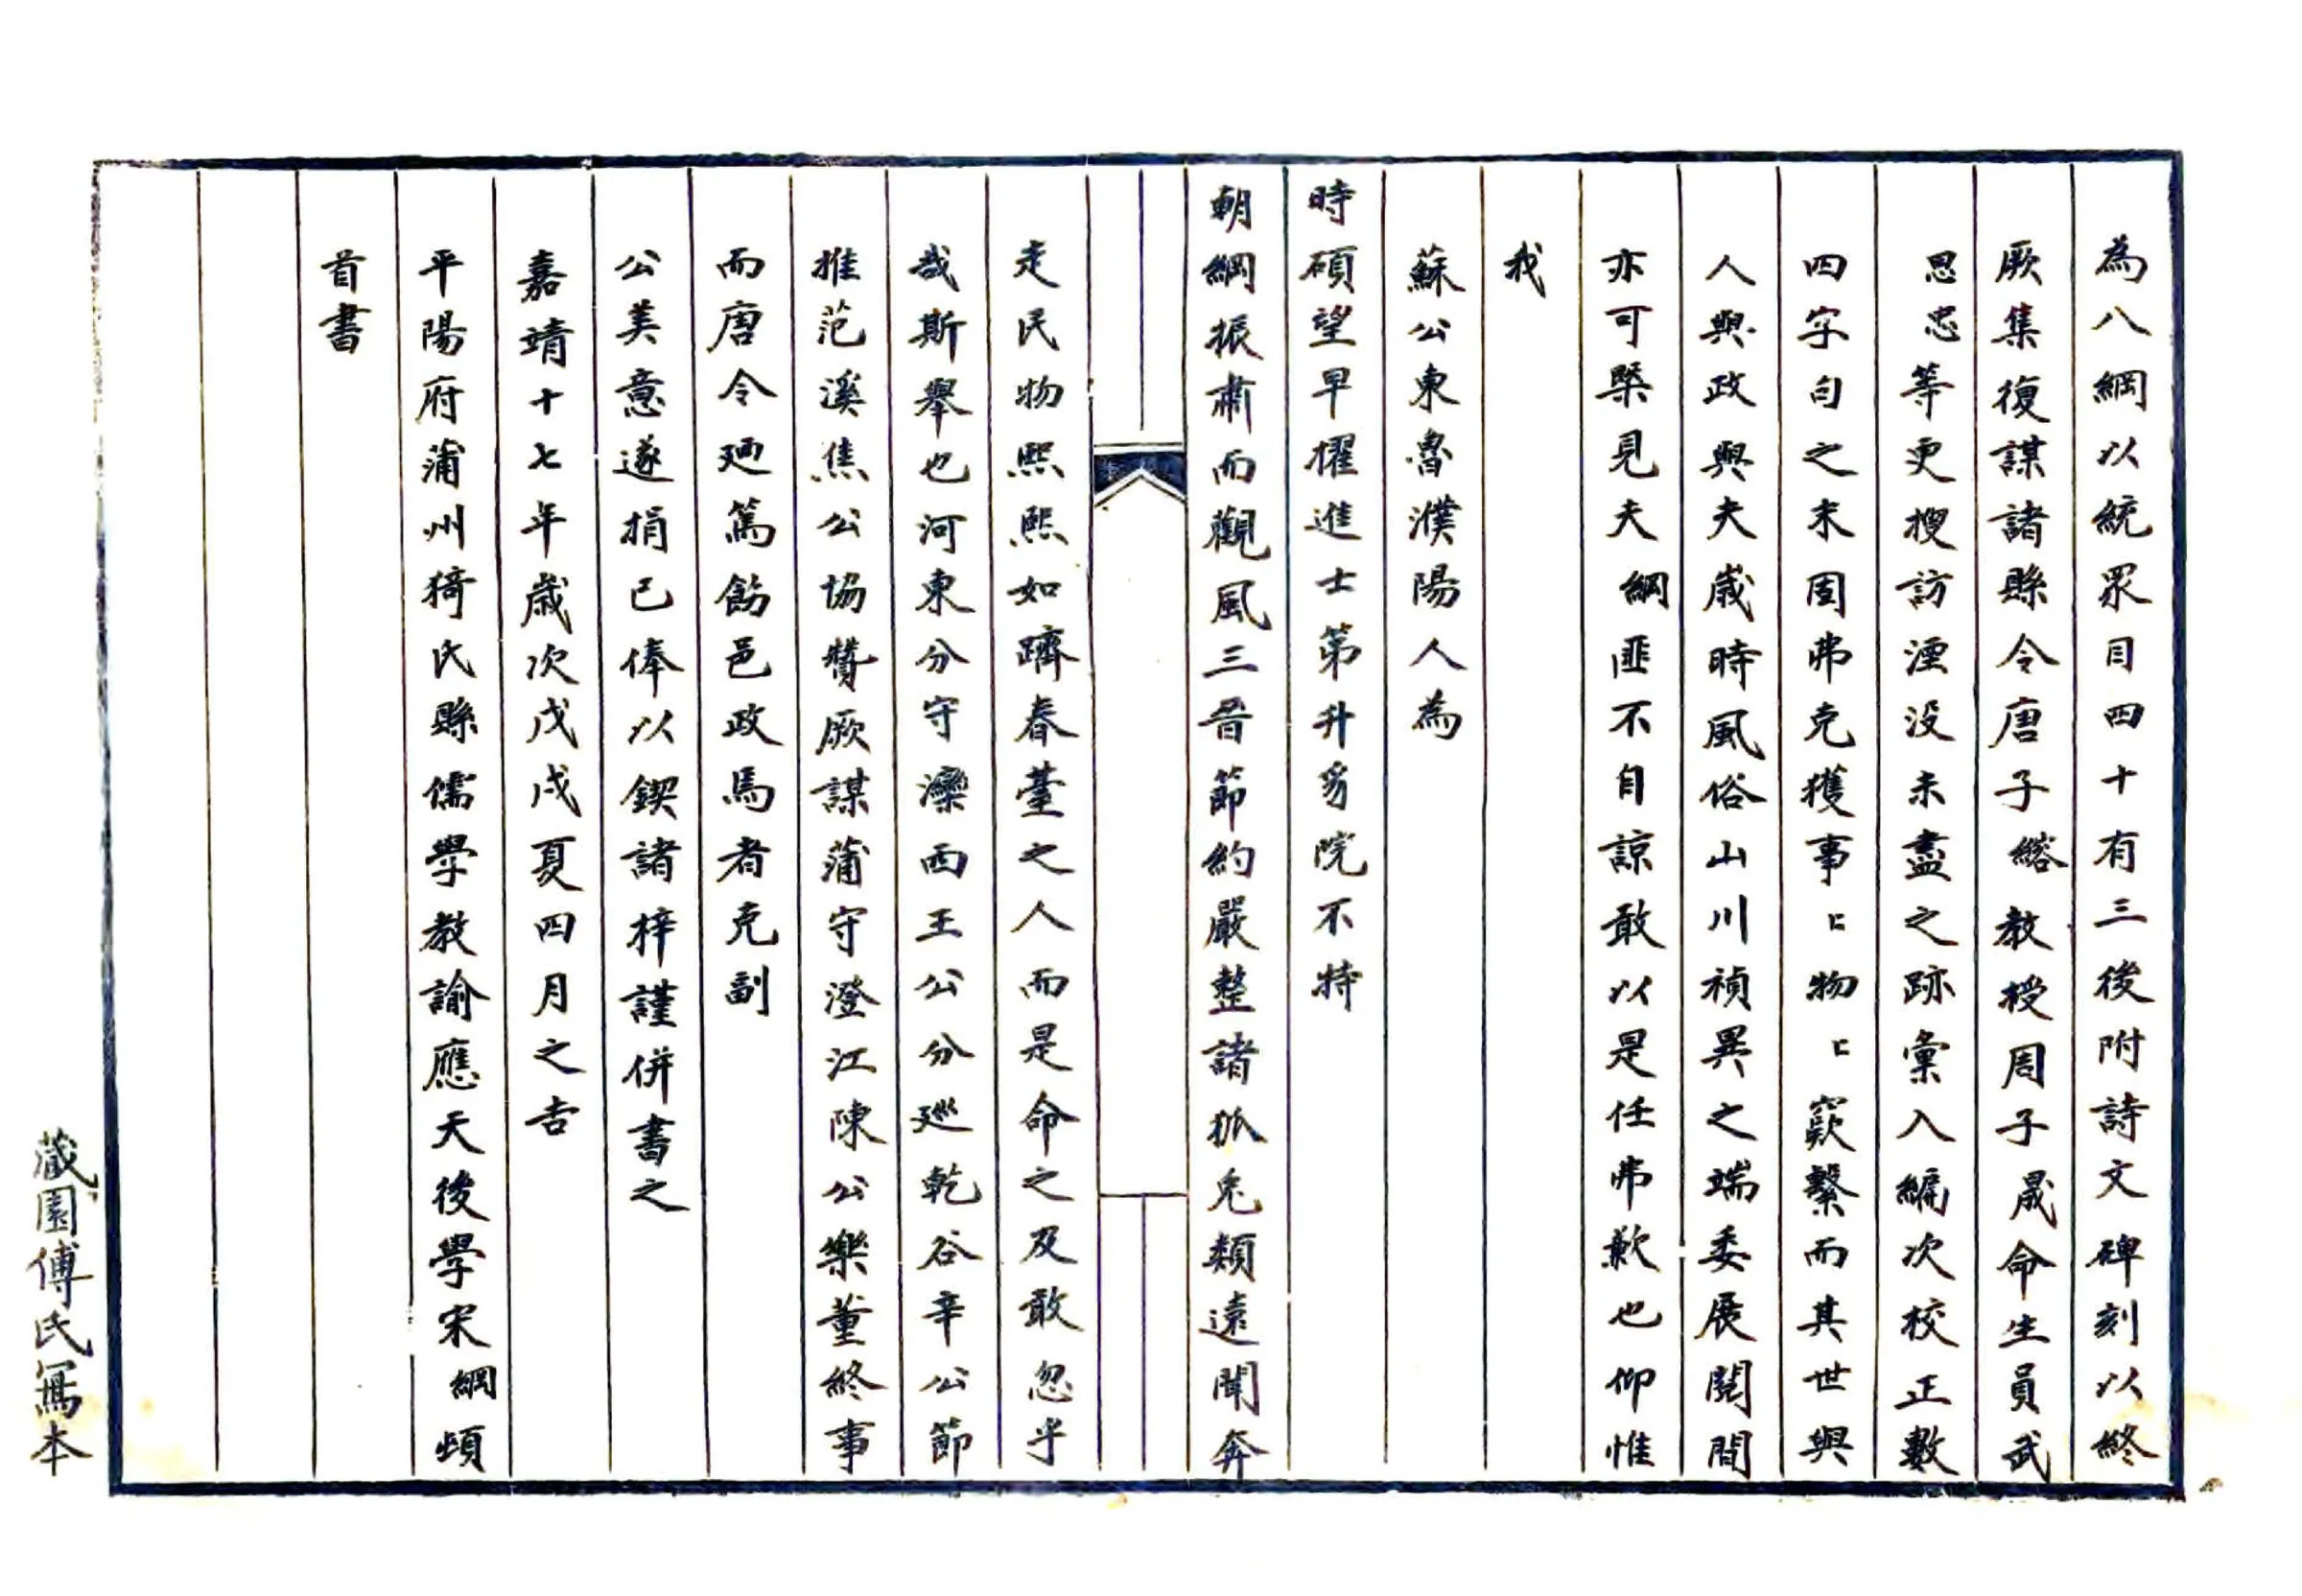 為八綱以統眾目四十有三後附詩文碑刻以終
厥集復謀諸縣令唐子綹教授周子晟命生員武
思忠等更搜訪湮没未盡之跡彙入編次校正數
四字句之末固弗克獲事〻物〻窾繫而其世與
人與政與夫歲時風俗山川禎異之端委展閱間
亦可槩見夫綱匪不自諒敢以是任弗歉也仰惟
我
蘇公東魯濮陽人為
時碩望早擢進士第升豸院不特
朝綱振肅而觀風三晋節約嚴整諸狐兎類遠聞奔
走民物熙熙如躋春臺之人而是命之及敢忽乎
哉斯舉也河東分守灤西王公分廵乾谷辛公節
推范溪焦公協贊厥謀蒲守澄江陳公樂董終事
而唐令廼篤飭邑政焉者克副
公美意遂捐已俸以鍥諸梓謹併書之
嘉靖十七年歲次戊戌夏四月之吉
平陽府蒲州猗氏縣儒學教諭應天後學宋綱頓
首書
藏園傅氏寫本